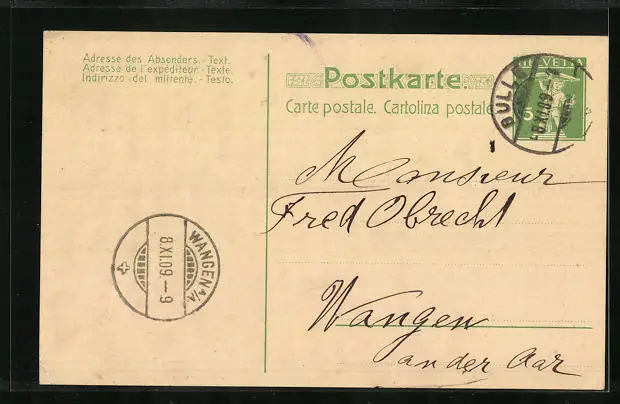 Adresse des Absenders. - Text.
Adresse de l'expéditeur - Texte.
Indirizzo del mittente. - Testo.
Postkarte.
Carte postale. Cartolina postale
HELVETIA
5
BULLE
8.XI.09.
Monsieur
Fred Obrecht
Wangen
an der Aar
WANGEN a/A.
8.XI.09.-9